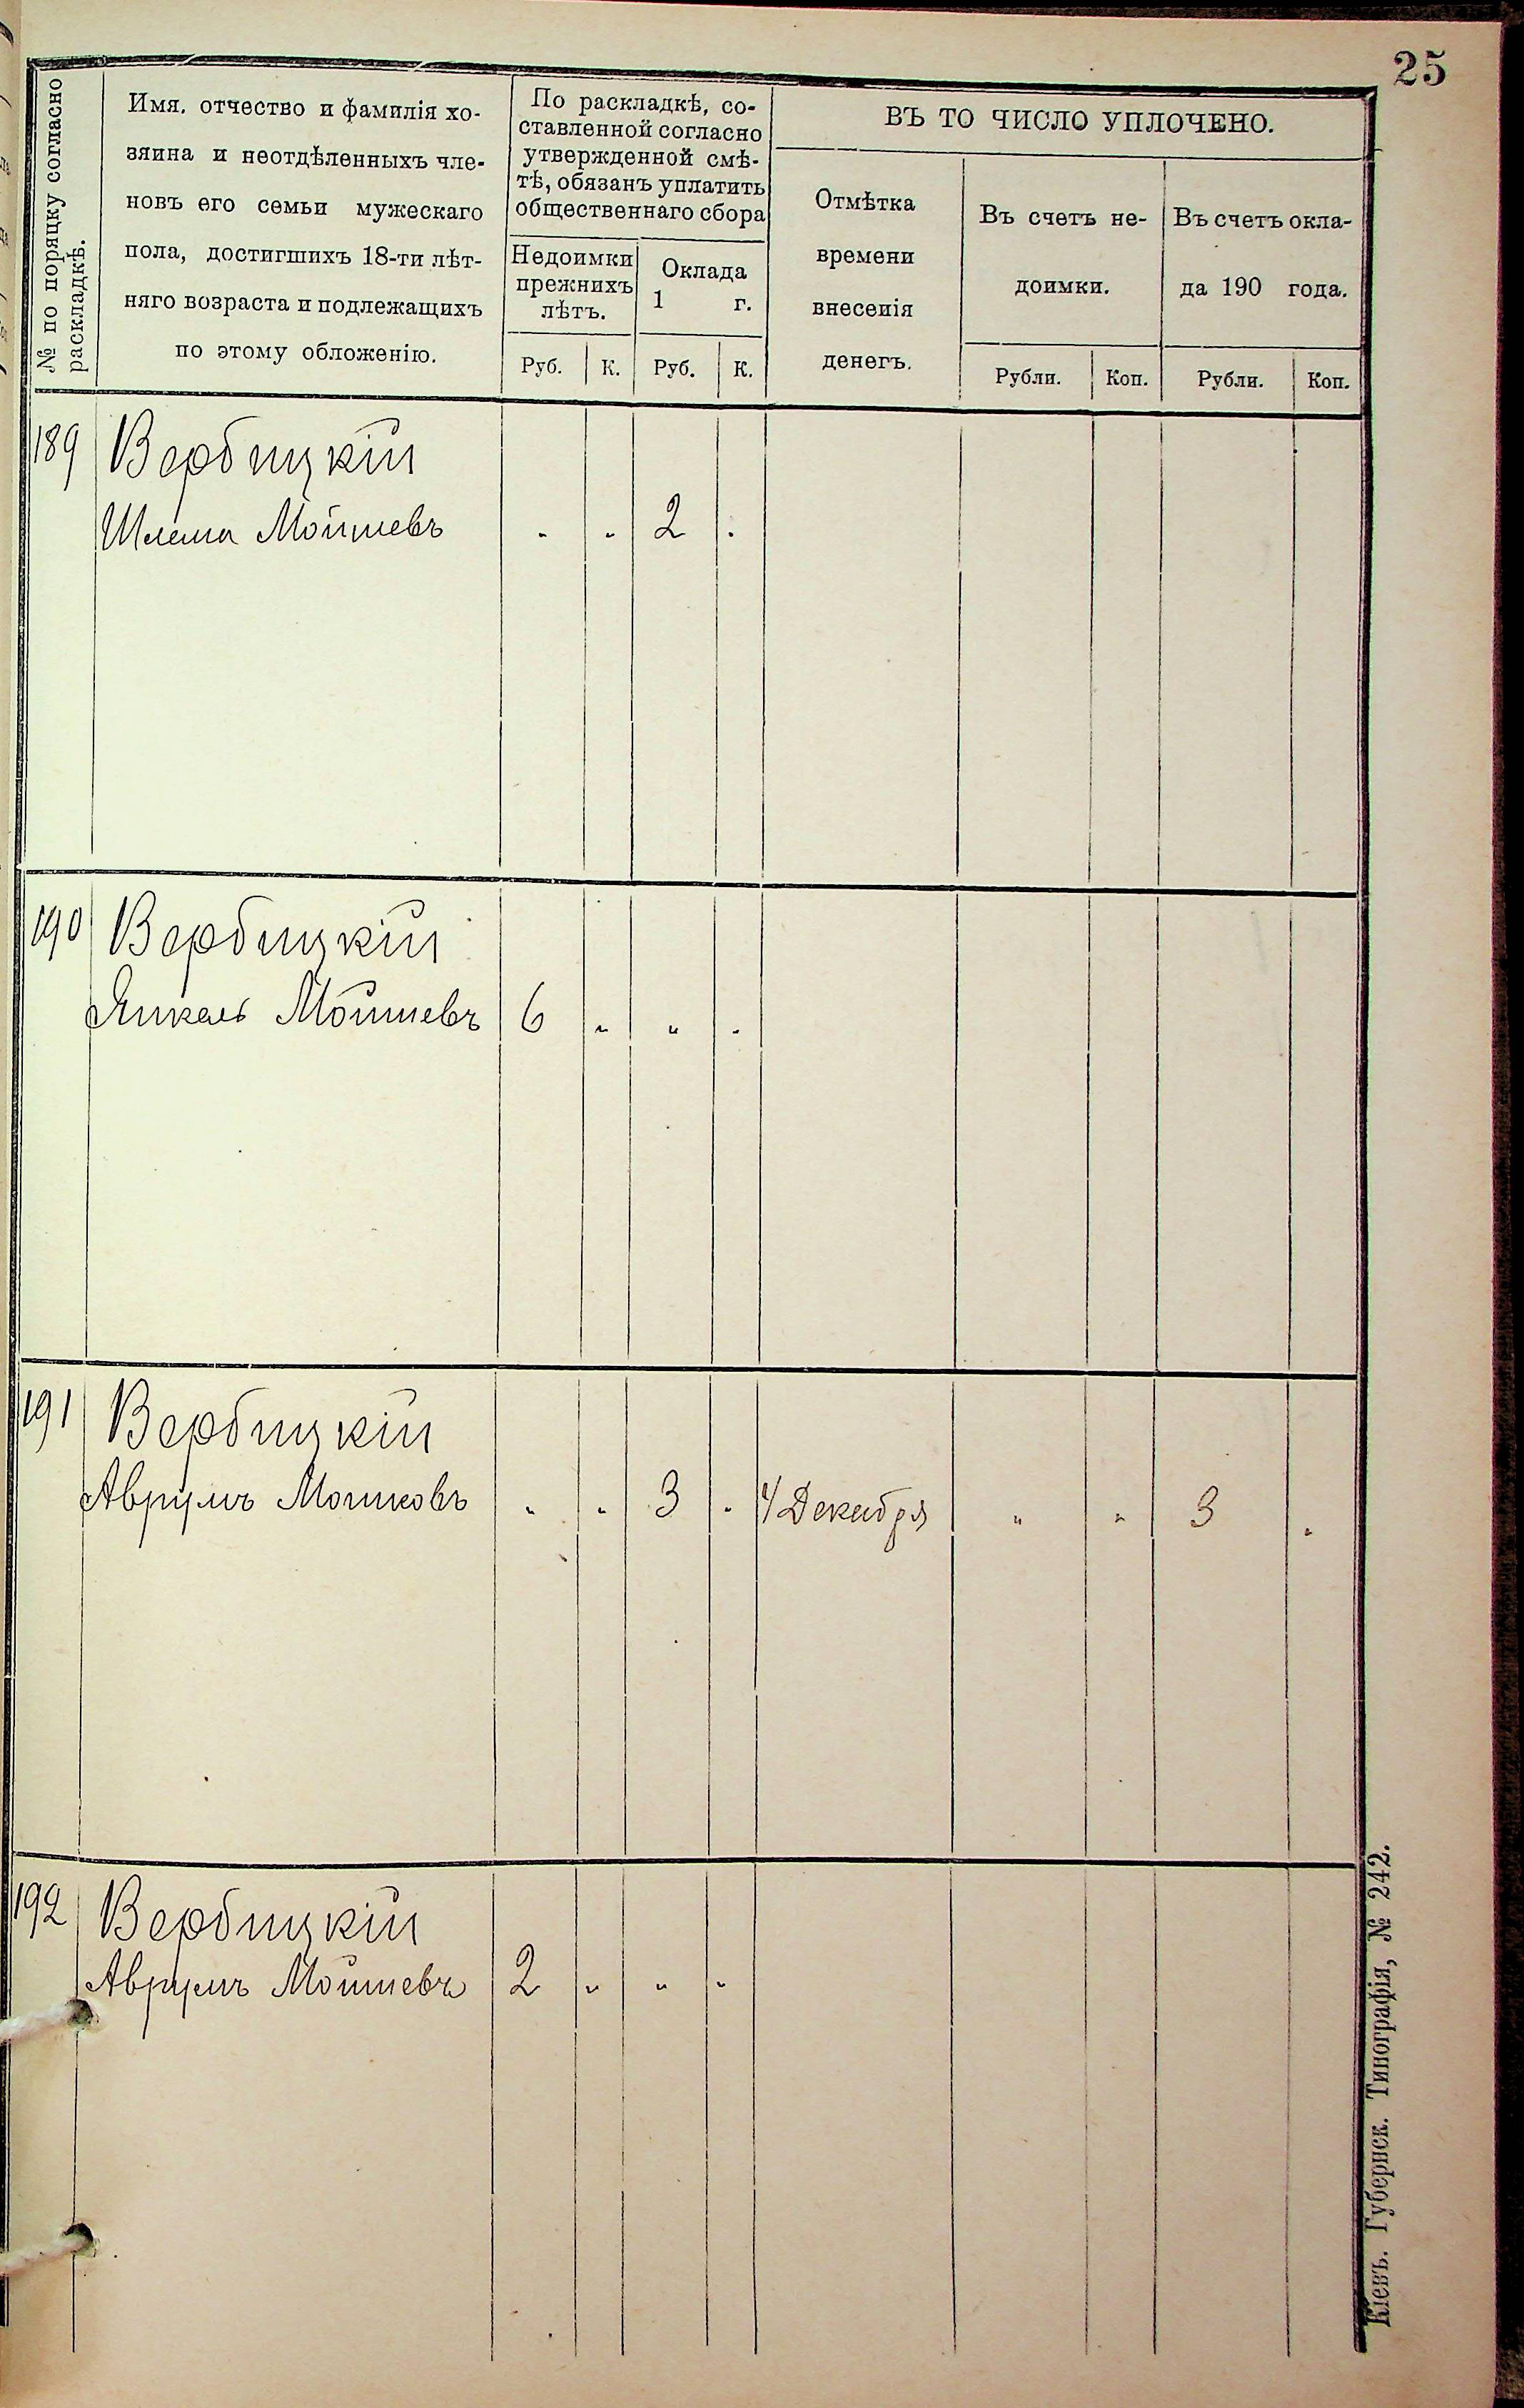 25
№ по поряцку согласно
раскладкѣ.
Имя. отчество и фамилія хо-
зяина и неотдѣленныхъ чле-
новъ его семьи мужескаго
пола, достигшихъ 18-ти лѣт-
няго возраста и подлежащихъ
по этому обложенію.
По раскладкѣ, со-
ставленной согласно
утвержденной смѣ-
тѣ, обязанъ уплатить
общественнаго сбора
Недоимки
прежнихъ
лѣтъ.
Оклада
1 г.
Руб. К. Руб. К.
ВЪ ТО ЧИСЛО УПЛОЧЕНО.
Отмѣтка
времени
внесенія
денегъ.
Въ счетъ не-
доимки.
Въ счетъ окла-
да 190 года.
Рубли. Коп. Рубли. Коп.
189 Вербицкій
Шлема Мойшевъ " " 2 "
190 Вербицкій
Янкель Мойшевъ 6 " " "
191 Вербицкій
Аврумъ Мошковъ " " 3 " 4 Декабря " " 3 "
192 Вербицкій
Аврумъ Мойшевъ 2 " " "
Кіевъ. Губернск. Типографія, № 242.